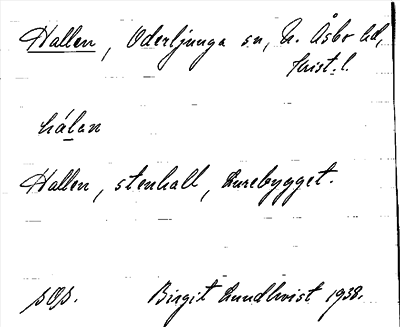 Hallen, Oderljunga sn, N. Åsbo hd,
Krist. l.
hálan
Hallen, stenhall, Lurebygget.
sOs. Birgit Lundkvist 1938.